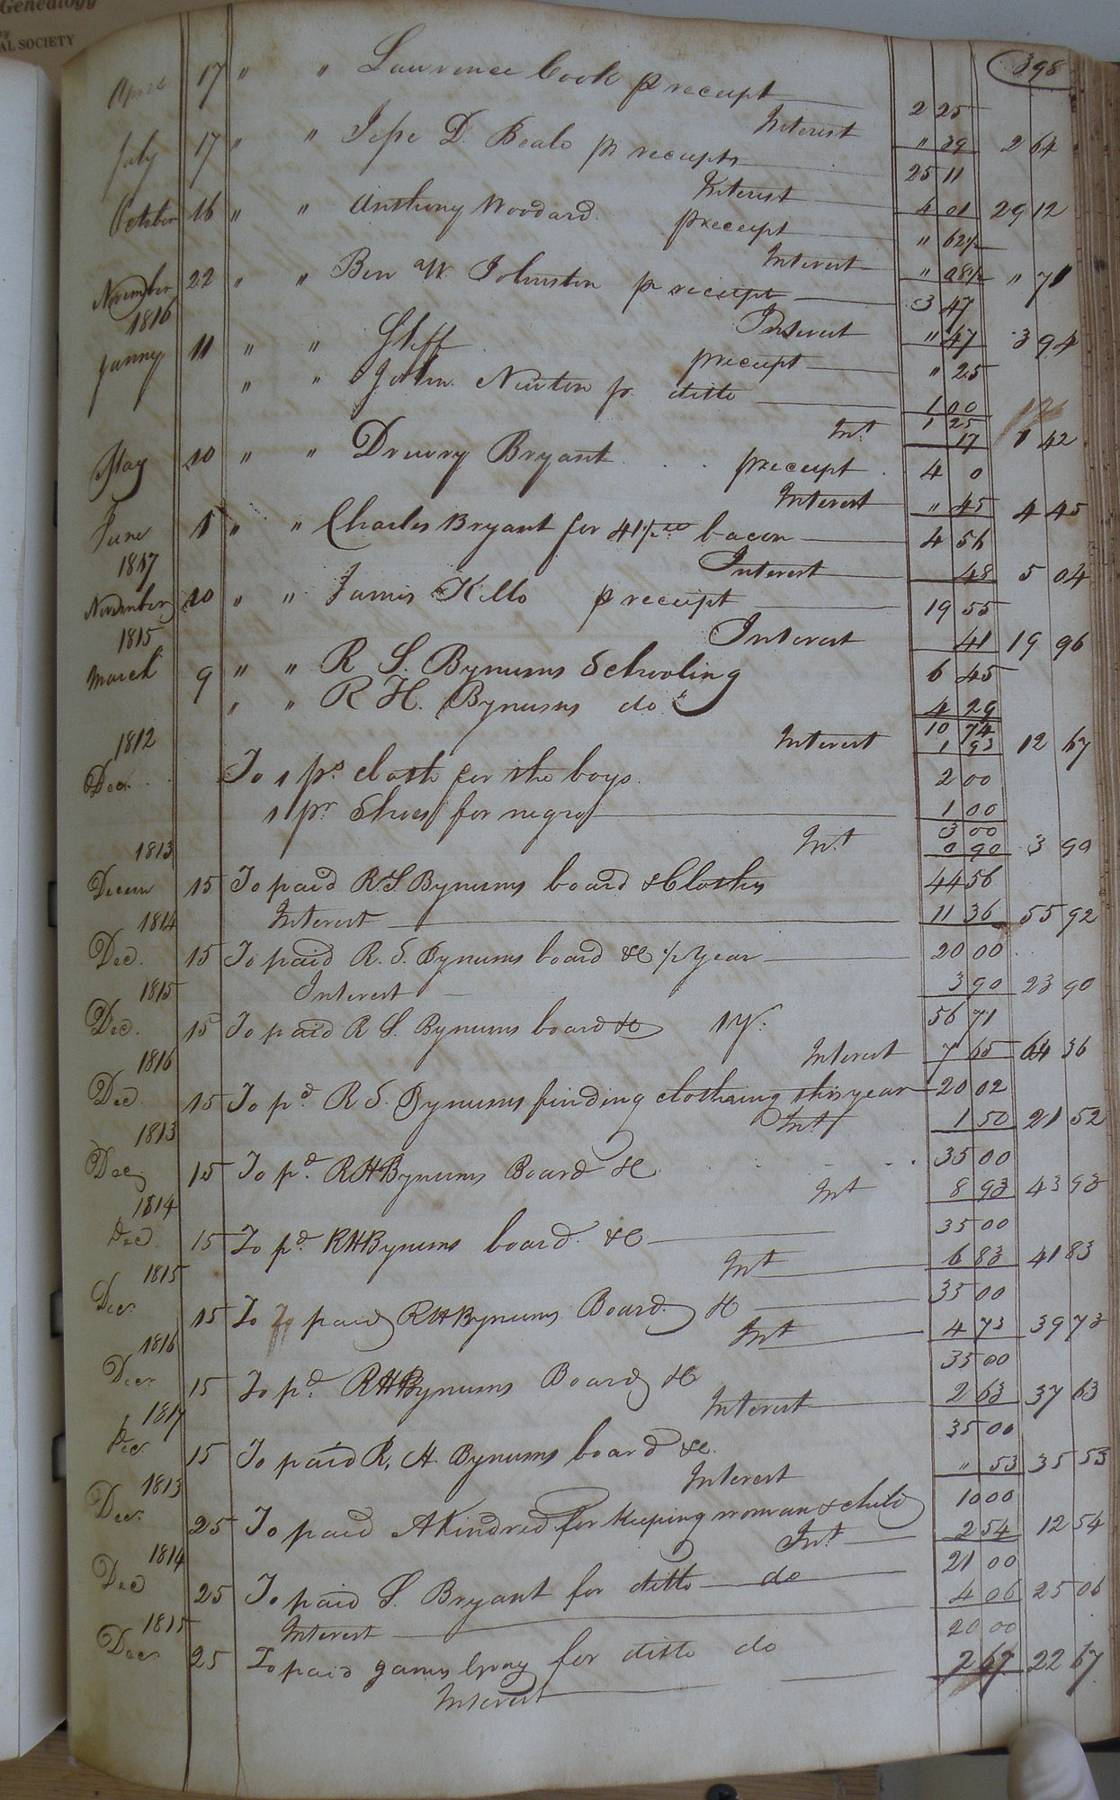 Genealogy
AL SOCIETY
398
April 17 " " Lawrence Cook pr receipt 2 25
Interest " 39 2 64
July 17 " " Jesse D. Beale pr receipts 25 11
Interest 4 01 29 12
October 16 " " Anthony Woodard preceipt " 62½
Interest " 08½ " 71
November 22 " " Ben W. Johnston pr receipt 3 47
Interest " 47 3 94
1816
Janny 11 " " Sheff preceipt " 25
" " John Newton pr. ditto 1 00
1 25
Int 17 1 42
May 20 " " Drewry Bryant preceipt 4 0
Interest " 45 4 45
June 1 " " Charles Bryant for 41½ bacon 4 56
Interest 48 5 04
1817
November 20 " " James Kello preceipt 19 55
Interest 41 19 96
1815
March 9 " " R S. Bynums Schooling 6 45
" " R H. Bynums do 4 29
10 74
Interest 1 93 12 67
1812
Decr To 1 ps cloth for the boys 2 00
1 pr Shoes for negro 1 00
3 00
Int 0 90 3 90
1813
Decem 15 To paid R S Bynums board & Cloths 44 56
Interest 11 36 55 92
1814
Dec. 15 To paid R. S. Bynums board &c ½ year 20 00
Interest 3 90 23 90
1815
Dec. 15 To paid R S. Bynums board &c 1 y. 56 71
Interest 7 65 64 36
1816
Dec 15 To pd R S. Bynums finding clothing this year 20 02
Int 1 50 21 52
1813
Dec 15 To pd. R H Bynums Board &c 35 00
Int 8 93 43 93
1814
Dec 15 To pd. R H Bynums board &c 35 00
Int 6 83 41 83
1815
Dec 15 To paid R H Bynums Board &c 35 00
Int 4 73 39 73
1816
Decr 15 To pd. R H Bynums Board &c 35 00
Interest 2 63 37 63
1817
Dec 15 To paid R. H. Bynums board &c. 35 00
Interest " 53 35 53
1813
Decr 25 To paid A Kindred for keeping woman & child 10 00
Int 2 54 12 54
1814
Dec 25 To paid S. Bryant for ditto do 21 00
Interest 4 06 25 06
1815
Decr 25 To paid James for ditto do 20 00
Interest 2 67 22 67